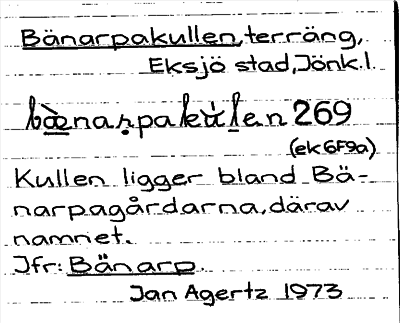 Bänarpakullen, terräng,
Eksjö stad, Jönk.l.
bæ̀naṛpakù̱len 269
(ek 6F9a)
Kullen ligger bland Bä-
narpagårdarna, därav
namnet.
Jfr: Bänarp.
Jan Agertz 1973